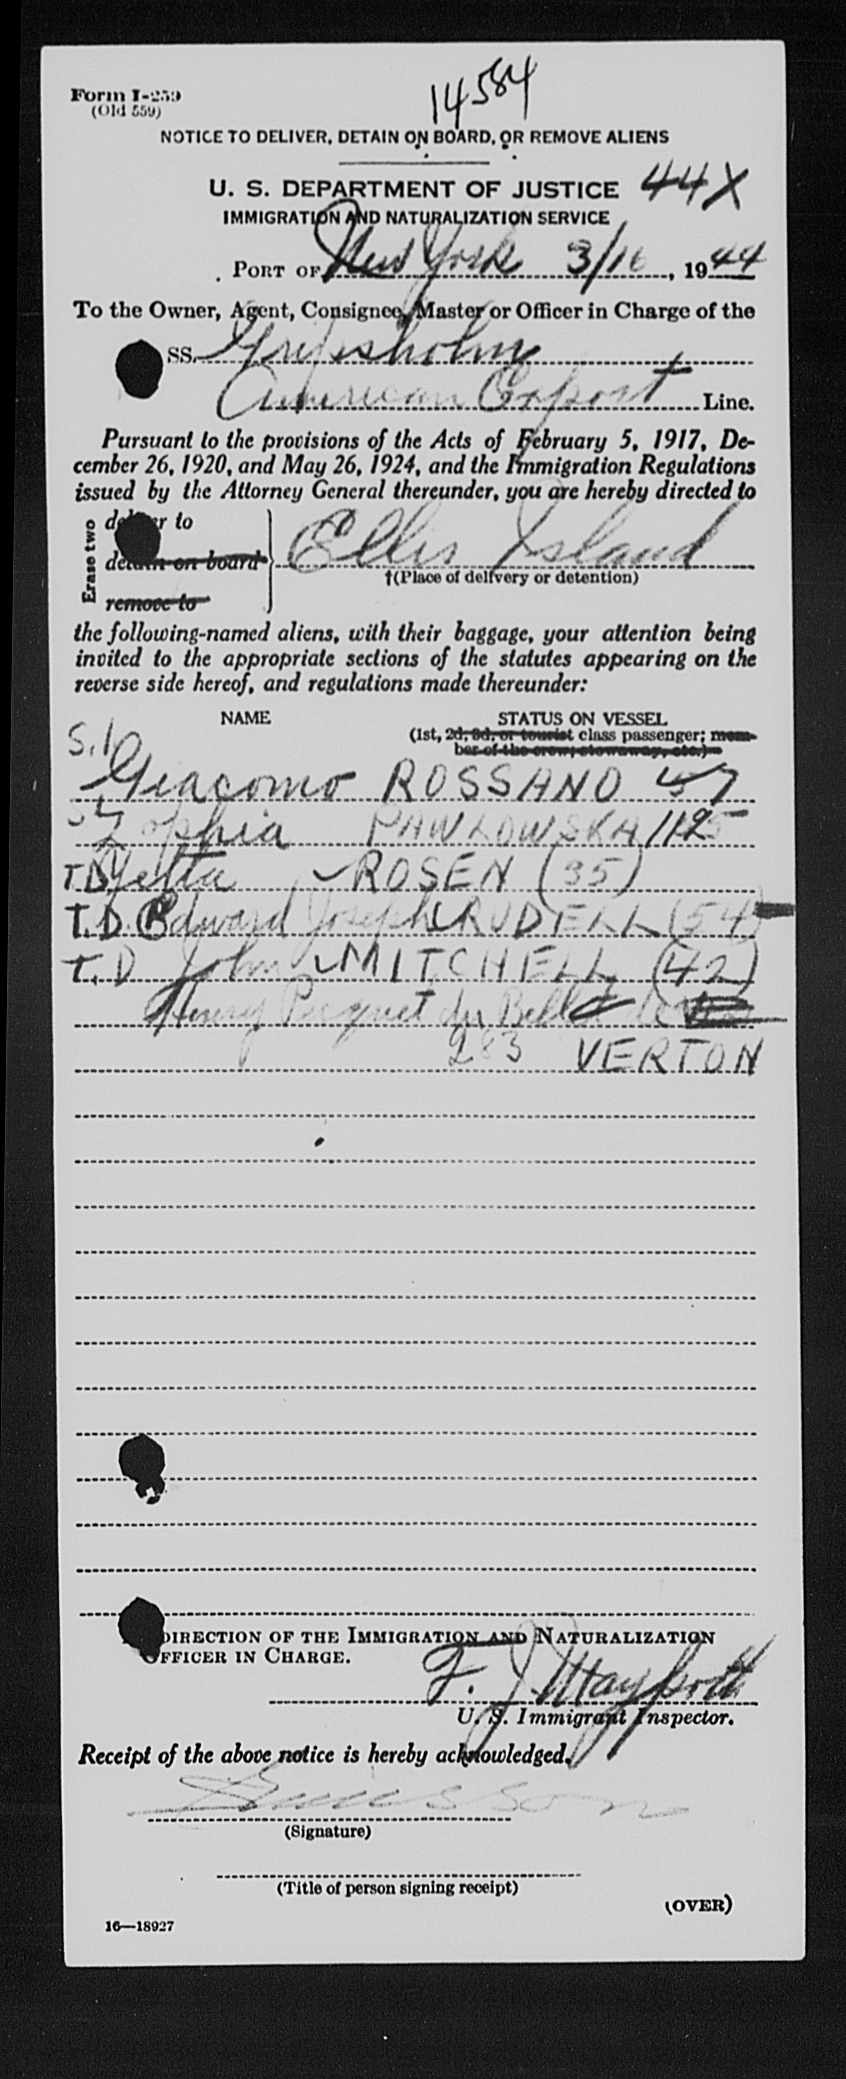 14584
Form I-259
(Old 559)
NOTICE TO DELIVER, DETAIN ON BOARD, OR REMOVE ALIENS
U. S. DEPARTMENT OF JUSTICE 44X
IMMIGRATION AND NATURALIZATION SERVICE
PORT OF New York 3/16, 1944
To the Owner, Agent, Consignee, Master or Officer in Charge of the
SS. Gripsholm
American Export Line.
Pursuant to the provisions of the Acts of February 5, 1917, De-
cember 26, 1920, and May 26, 1924, and the Immigration Regulations
issued by the Attorney General thereunder, you are hereby directed to
Erase two
deliver to
detain on board Ellis Island
†(Place of delivery or detention)
remove to
the following-named aliens, with their baggage, your attention being
invited to the appropriate sections of the statutes appearing on the
reverse side hereof, and regulations made thereunder:
NAME STATUS ON VESSEL
(1st, 2d, 3d, or tourist class passenger; mem-
ber of the crew; stowaway, etc.)
S.I.
Giacomo ROSSANO 57
Zophia PAWLOWSKA 1125
T.D. Yetta ROSEN (35)
T.D. Edward Joseph RUDELL (54)
T.D John MITCHELL (42)
Henry Pecquet du Bellet de
283 VERTON
DIRECTION OF THE IMMIGRATION AND NATURALIZATION
OFFICER IN CHARGE.
F. J.
U. S. Immigrant Inspector.
Receipt of the above notice is hereby acknowledged.
(Signature)
(Title of person signing receipt)
(OVER)
16—18927